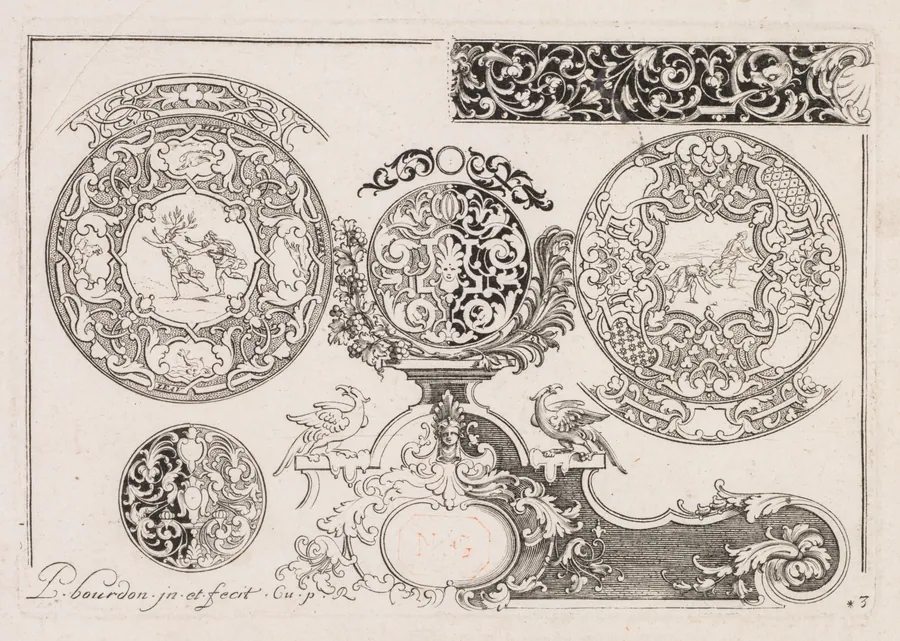 N·G
P. bourdon · jn · et · fecit · Cu · p · R
* 3